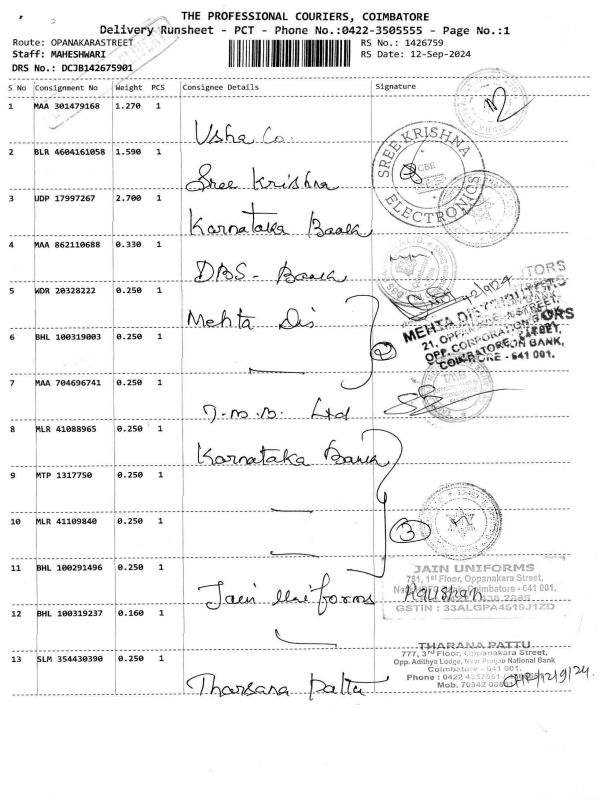 THE PROFESSIONAL COURIERS, COIMBATORE
Delivery Runsheet - PCT - Phone No.:0422-3505555 - Page No.:1
Route: OPANAKARASTREET
Staff: MAHESHWARI
DRS No.: DCJB142675901
RS No.: 1426759
RS Date: 12-Sep-2024
S No Consignment No Weight PCS Consignee Details Signature
1 MAA 301479168 1.270 1 Usha Co.
2 BLR 4604161058 1.590 1 Sree Krishna
SREE KRISHNA
CBE
ELECTRONICS
3 UDP 17997267 2.700 1 Karnataka Bank
4 MAA 862110688 0.330 1 DBS - Bank
5 WDR 20328222 0.250 1 Mehta Dis
6 BHL 100319003 0.250 1
2
MEHTA
OPP. CORPORATION
COIMBATORE - 641 001.
7 MAA 704696741 0.250 1 T.M.B. Ltd
8 MLR 41088965 0.250 1 Karnataka Bank
9 MTP 1317750 0.250 1
10 MLR 41109840 0.250 1
3
11 BHL 100291496 0.250 1 Jain Uniforms
JAIN UNIFORMS
781, 1st Floor, Oppanakara Street,
Coimbatore - 641 001.
GSTIN : 33ALGPA4619J1ZD
12 BHL 100319237 0.160 1
13 SLM 354430390 0.250 1 Tharsana Pattu
THARANA PATTU
777, 3rd Floor, Oppanakara Street,
Opp. Adithya Lodge, Near Punjab National Bank
Coimbatore - 641 001.
Phone : 0422 4357551
Mob. 70942
12/9/24.